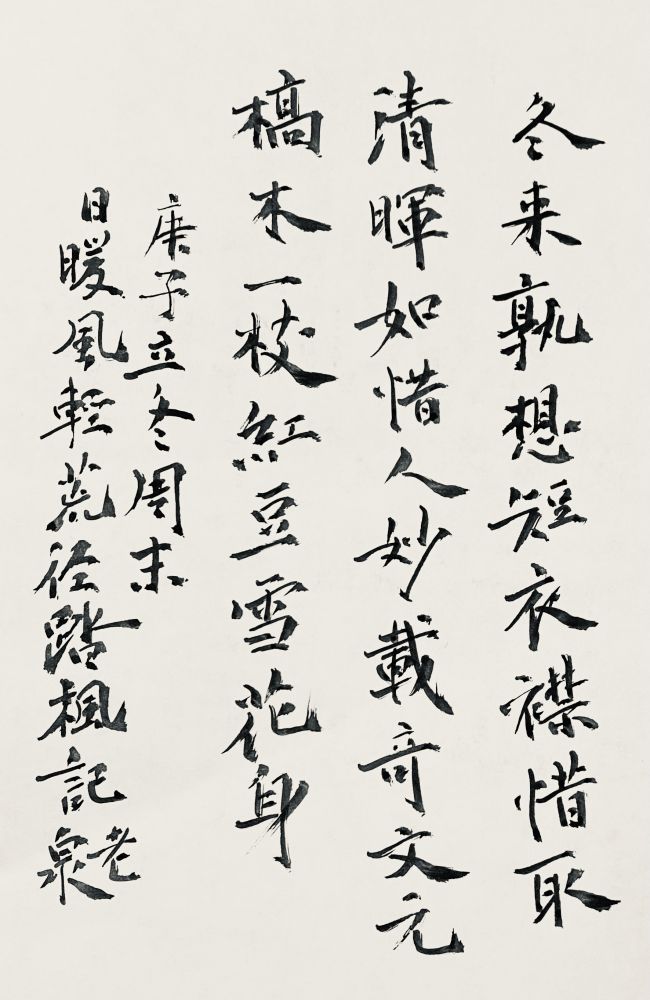 冬来孰想短衣襟惜取
清暉如惜人妙載奇文元
槁木一枝紅豆雪花身
庚子立冬周末
日暖風輕荒径踏楓記老泉